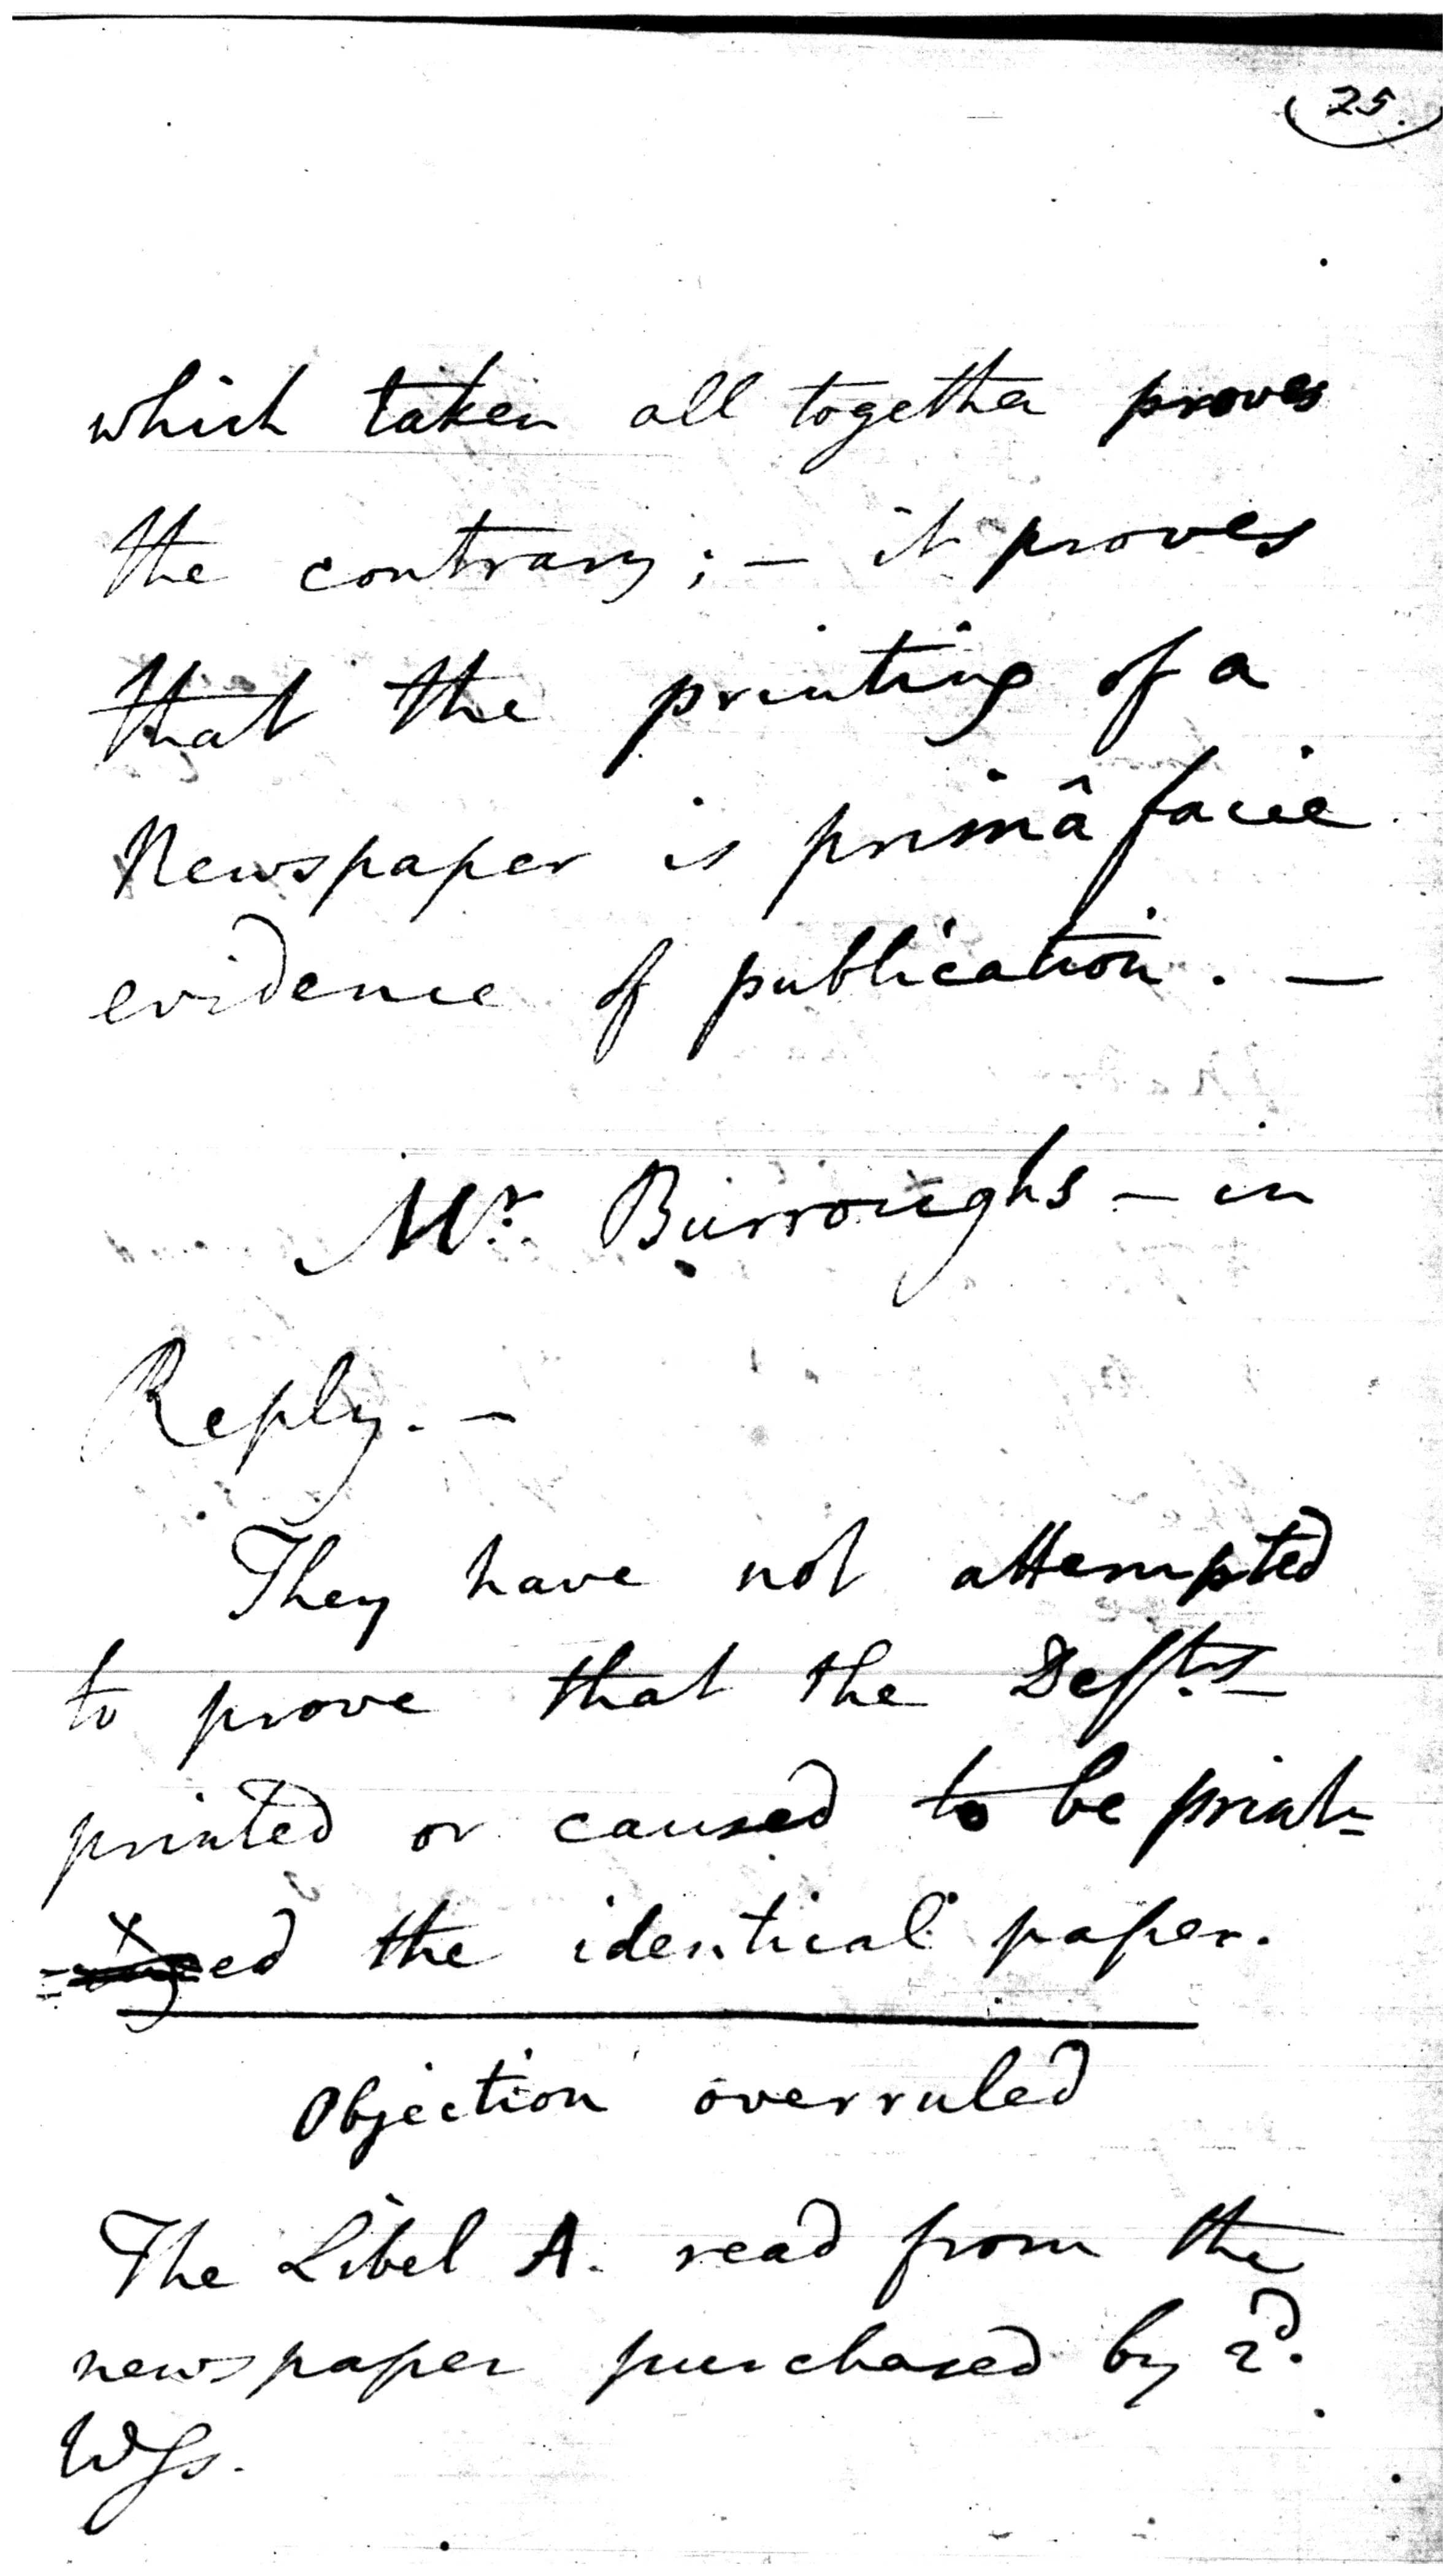 25.
which taken all together proves
the contrary; – it proves
that the printing of a
Newspaper is primâ facie
evidence of publication. –
Mr. Burroughs – in
Reply. –
They have not attempted
to prove that the Defts
printed or caused to be print=
=ed the identical paper.
Objection overruled
The Libel A. read from the
newspaper purchased by 2d.
Wss.